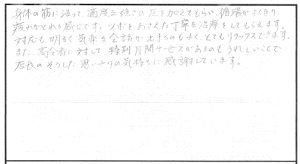 身体の筋に沿って適度な強さで圧を加えてもらい、循環がよくなり
疲れがとれる感じです。ツボをおさえた丁寧な治療をしてもらえます。
対応も明るく気楽な会話が出来るのもよく、とてもリラックスできます。
また、高令者に対して特別月間サービスがあるのもうれしいことで
店長のそうした思いやりの気持ちに感謝しています。